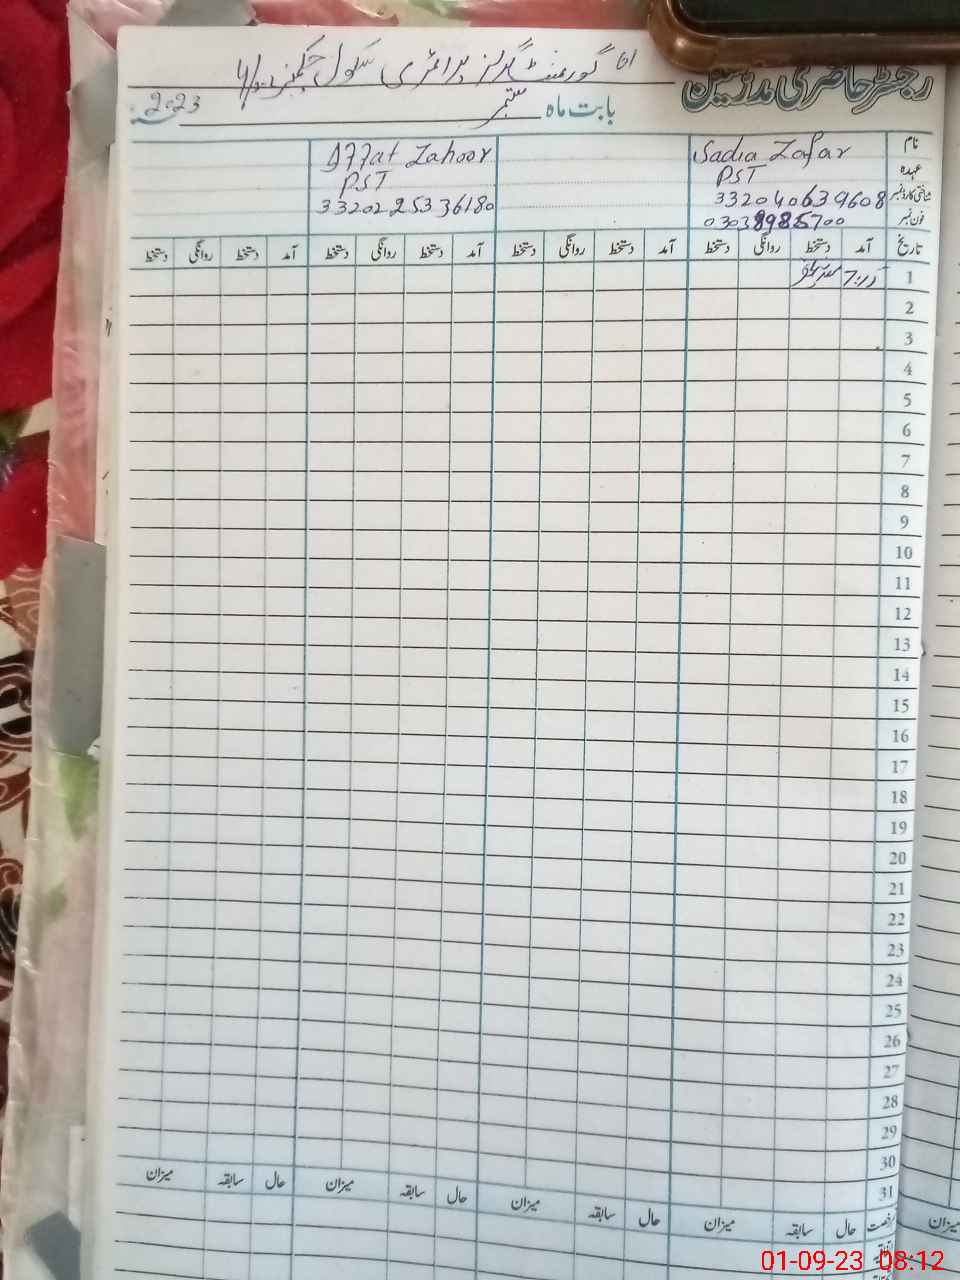 رجسٹر حاضری مدرسین
گورنمنٹ گرلز پرائمری سکول
بابت ماہ ستمبر 2023
نام Sadia Zafar Iffat Zahoor
عہدہ PST PST
شناختی کارڈ نمبر 3320406319608 3320225336180
فون نمبر
تاریخ آمد دستخط روانگی دستخط آمد دستخط روانگی دستخط آمد دستخط روانگی دستخط آمد دستخط روانگی دستخط
1
2
3
4
5
6
7
8
9
10
11
12
13
14
15
16
17
18
19
20
21
22
23
24
25
26
27
28
29
30
31
رخصت حال سابقہ میزان حال سابقہ میزان حال سابقہ میزان حال سابقہ میزان
میزان
01-09-23 08:12